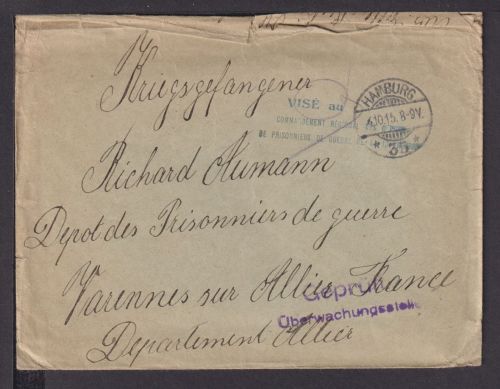 Kriegsgefangener
VISÉ au
COMMANDEMENT RÉGIONAL
DE PRISONNIERS DE GUERRE
HAMBURG
10.15. 8-9V.
* 3 *
Richard
Depot des Prisonniers de guerre
Varennes sur Allier France
Geprüft
Überwachungsstelle
Departement Allier